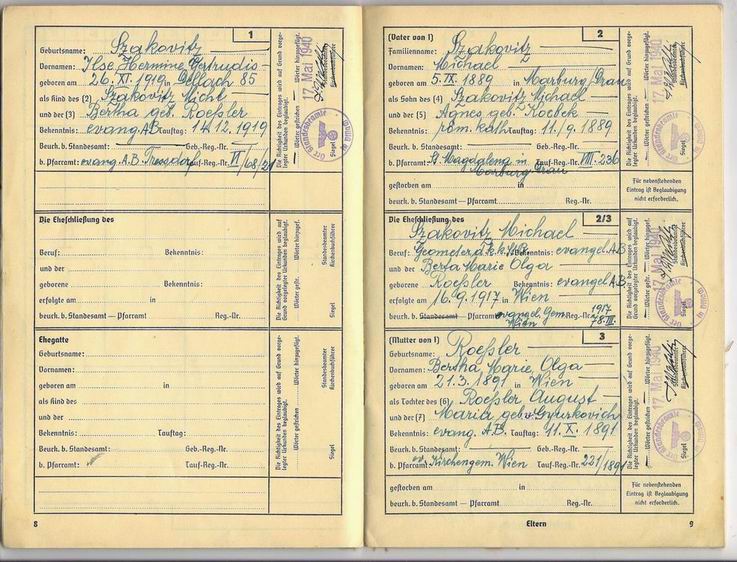 1
Geburtsname: Szakovitz
Vornamen: Ilse Hermine Gertrudis
geboren am 26. XI. 1919 in Döllach 85
als Kind des (2) Szakovitz Michl
und der (3) Bertha geb. Roeßler
Bekenntnis: evang. A.B. Tauftag: 14.12.1919
Beurk. b. Standesamt: Geb.-Reg.-Nr.
b. Pfarramt: evang. A.B. Tauf-Reg.-Nr. VI/68/21
Die Richtigkeit des Eintrages wird auf Grund vorge-
legter Urkunden beglaubigt.
Wörter gestrichen Wörter hinzugefügt.
17. Mai 1940
Siegel
Die Eheschließung des
Beruf: Bekenntnis:
und der
geborene Bekenntnis:
erfolgte am in
beurk. b. Standesamt – Pfarramt Reg.-Nr.
Die Richtigkeit des Eintrages wird auf
Grund vorgelegter Urkunden beglaubigt.
Wörter gestr. Wörter hinzugef.
Standesbeamter
Kirchenbuchführer
Siegel
Ehegatte
Geburtsname:
Vornamen:
geboren am in
als Kind des
und der
Bekenntnis: Tauftag:
Beurk. b. Standesamt: Geb.-Reg.-Nr.
b. Pfarramt: Tauf-Reg.-Nr.
Die Richtigkeit des Eintrages wird auf Grund vorge-
legter Urkunden beglaubigt.
Wörter gestrichen Wörter hinzugefügt.
Standesbeamter
Kirchenbuchführer
Siegel
8
(Vater von 1) 2
Familienname: Szakovitz
Vornamen: Michael
geboren am 5. IX. 1889 in Marburg/Drau
als Sohn des (4) Szakovitz Michael
und der (5) Agnes geb. Roebek
Bekenntnis: röm. kath. Tauftag: 11./9. 1889
Beurk. b. Standesamt: Geb.-Reg.-Nr.
b. Pfarramt: St. Magdalena in Tauf-Reg.-Nr. VIII. 236
Marburg Drau
gestorben am in
beurk. b. Standesamt – Pfarramt Reg.-Nr.
Die Richtigkeit des Eintrages wird auf Grund vorge-
legter Urkunden beglaubigt.
Wörter gestrichen Wörter hinzugefügt.
17. Mai 1940
Siegel
Für nebenstehenden
Eintrag ist Beglaubigung
nicht erforderlich.
Die Eheschließung des 2/3
Szakovitz Michael
Beruf: Geometer Bekenntnis: evangel. A.B.
und der Berta Marie Olga
geborene Roeßler Bekenntnis: evangel. A.B.
erfolgte am 16./9. 1917 in Wien
beurk. b. Standesamt – Pfarramt evangel. Gem. Wien Reg.-Nr. 1917
Die Richtigkeit des Eintrages wird auf
Grund vorgelegter Urkunden beglaubigt.
Wörter gestr. Wörter hinzugef.
17. Mai 1940
Siegel
(Mutter von 1) 3
Geburtsname: Roeßler
Vornamen: Bertha Marie, Olga
geboren am 21. 3. 1891 in Wien
als Tochter des (6) Roeßler August
und der (7) Maria geb. v. Gyurkovich
Bekenntnis: evang. A.B. Tauftag: 11. X. 1891
Beurk. b. Standesamt: Geb.-Reg.-Nr.
b. Pfarramt: ev. Kirchengem. Wien Tauf-Reg.-Nr. 231/1891
gestorben am in
beurk. b. Standesamt – Pfarramt Reg.-Nr.
Die Richtigkeit des Eintrages wird auf Grund vorge-
legter Urkunden beglaubigt.
Wörter gestrichen Wörter hinzugefügt.
17. Mai 1940
Siegel
Für nebenstehenden
Eintrag ist Beglaubigung
nicht erforderlich.
Eltern
9